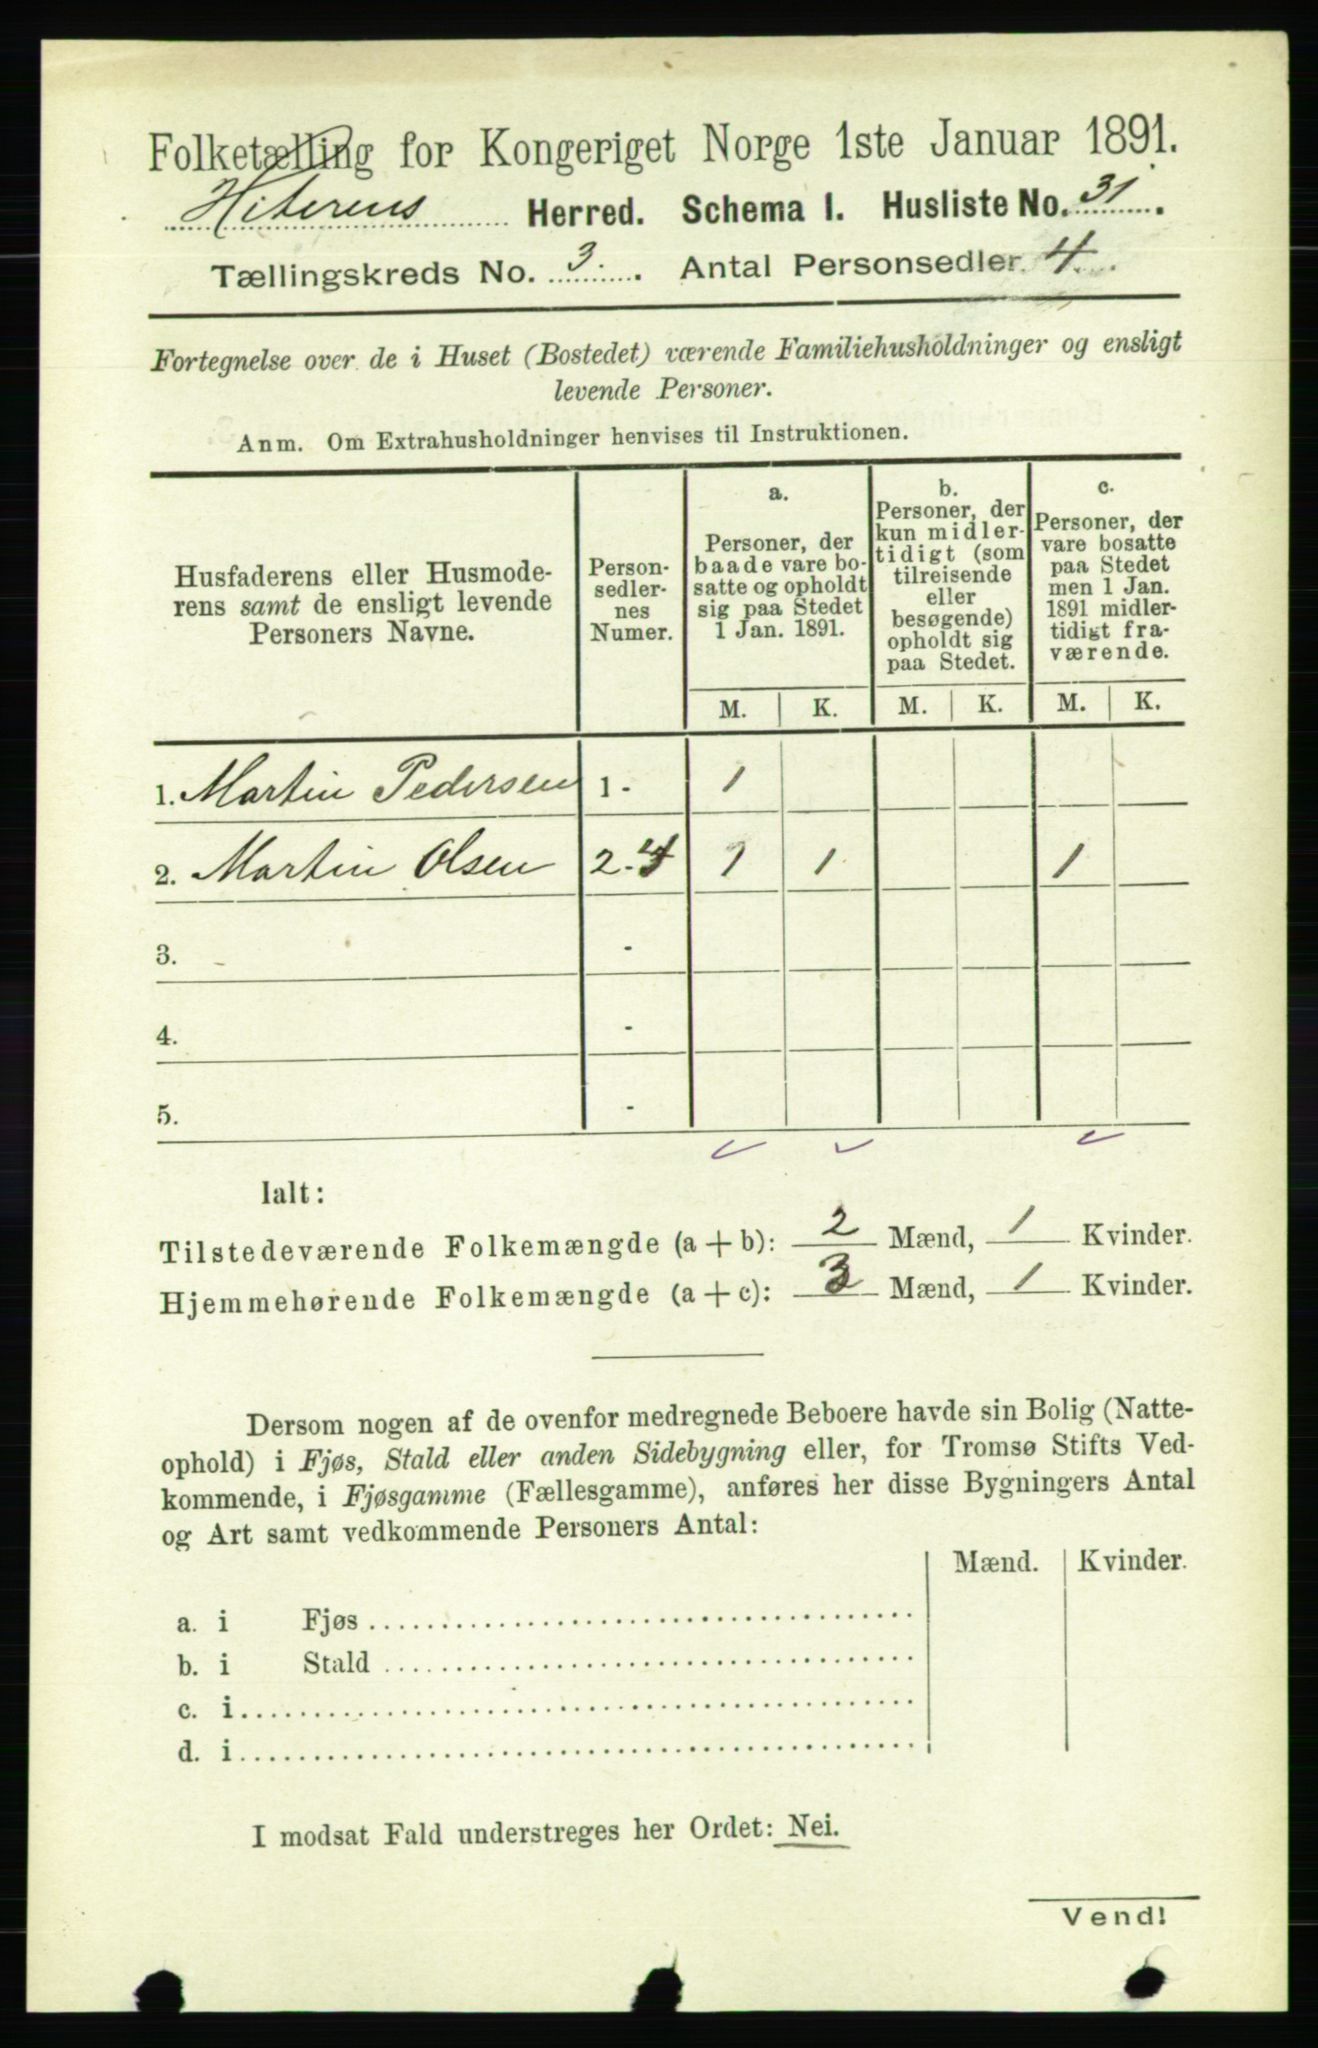 Folketælling for Kongeriget Norge 1ste Januar 1891.
Hiterens Herred. Schema 1. Husliste No. 31.
Tællingskreds No. 3. Antal Personsedler 4.
Fortegnelse over de i Huset (Bostedet) værende Familiehusholdninger og ensligt
levende Personer.
Anm. Om Extrahusholdninger henvises til Instruktionen.
Husfaderens eller Husmode-
rens samt de ensligt levende
Personers Navne.
Person-
sedler-
nes
Numer.
a.
Personer, der
baade vare bo-
satte og opholdt
sig paa Stedet
1 Jan. 1891.
b.
Personer, der
kun midler-
tidigt (som
tilreisende
eller
besøgende)
opholdt sig
paa Stedet.
c.
Personer, der
vare bosatte
paa Stedet
men 1 Jan.
1891 midler-
tidigt fra-
værende.
M. K. M. K. M. K.
1. Martin Pedersen 1- 1
2. Martin Olsen 2-4 1 1 1
3. -
4. -
5. -
Ialt:
Tilstedeværende Folkemængde (a + b): 2 Mænd, 1 Kvinder.
Hjemmehørende Folkemængde (a + c): 3 Mænd, 1 Kvinder.
Dersom nogen af de ovenfor medregnede Beboere havde sin Bolig (Natte-
ophold) i Fjøs, Stald eller anden Sidebygning eller, for Tromsø Stifts Ved-
kommende, i Fjøsgamme (Fællesgamme), anføres her disse Bygningers Antal
og Art samt vedkommende Personers Antal:
Mænd. Kvinder.
a. i Fjøs
b. i Stald
c. i
d. i
I modsat Fald understreges her Ordet: Nei.
Vend!